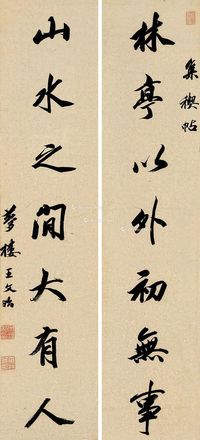 林亭以外初無事
集禊帖
山水之間大有人
夢樓王文治